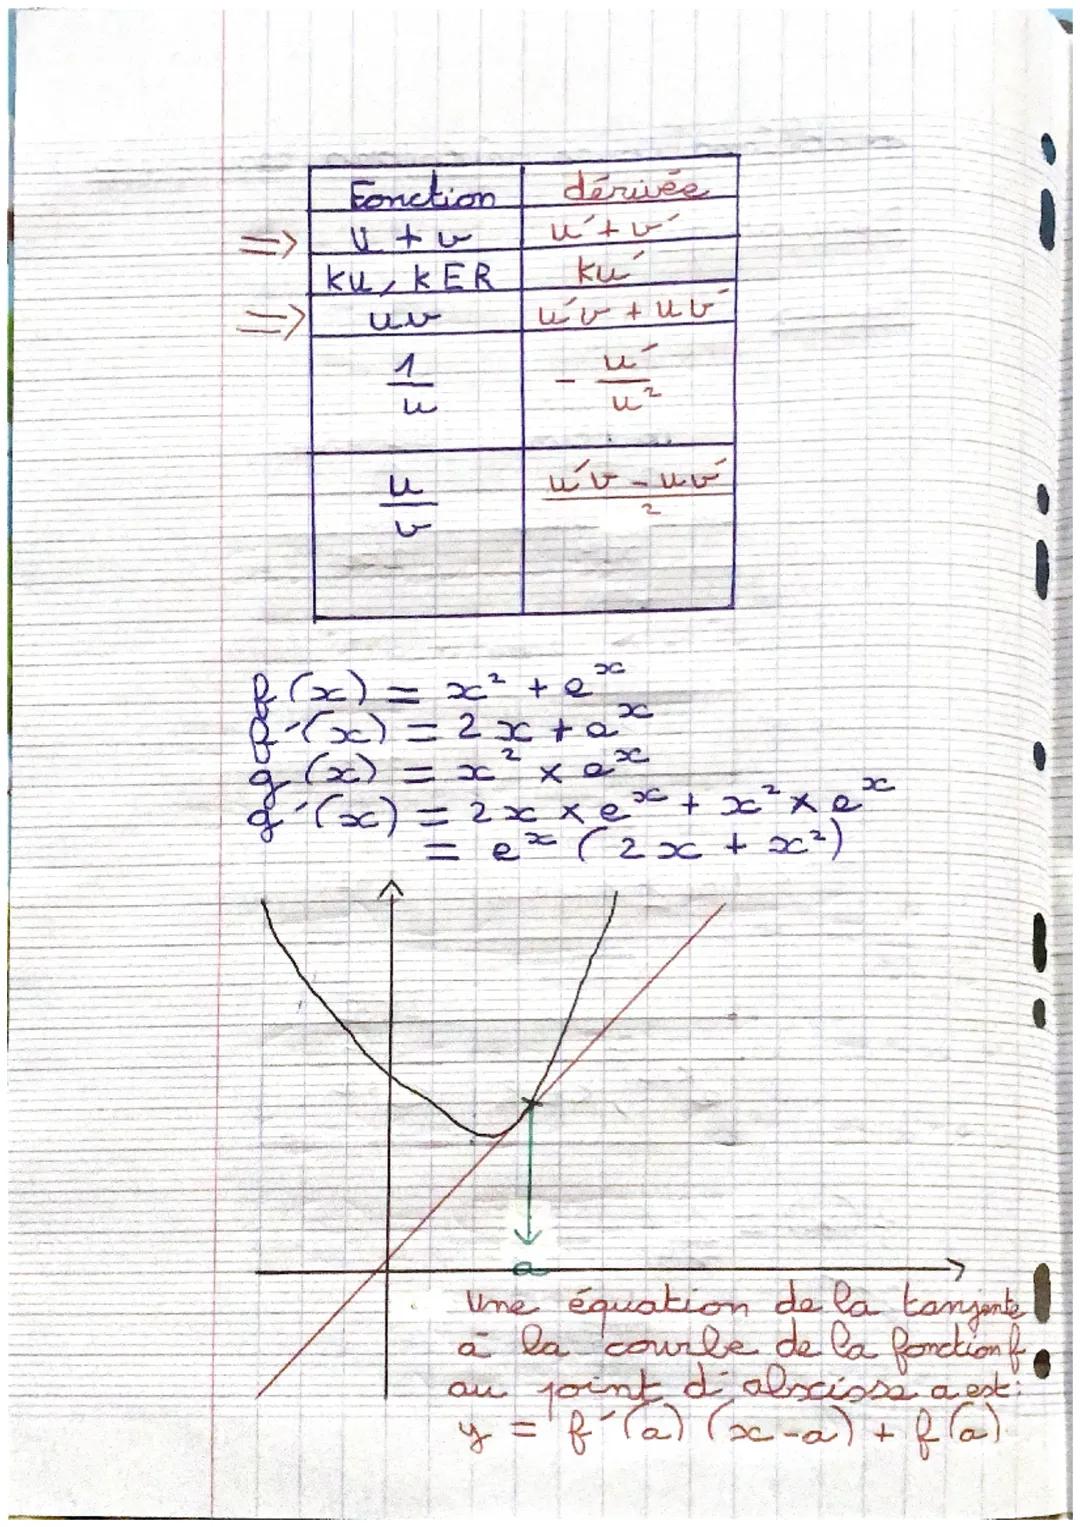 Fonction dérivée
=> u + v u' + v'
ku, k E R ku'
=> uv u'v + uv'
1/u - u'/u²
u/v u'v - uv'/2
f(x) = x² + e^x
f'(x) = 2x + e^x
g(x) = x² × e^x
g'(x) = 2x × e^x + x² × e^x
= e^x (2x + x²)
a
Une équation de la tangente
à la courbe de la fonction f
au point d'abscisse a est:
y = f'(a) (x-a) + f(a)